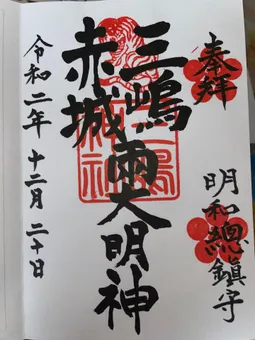 奉拝
明和總鎮守
三嶋
赤城
兩大明神
令和二年十二月二十日